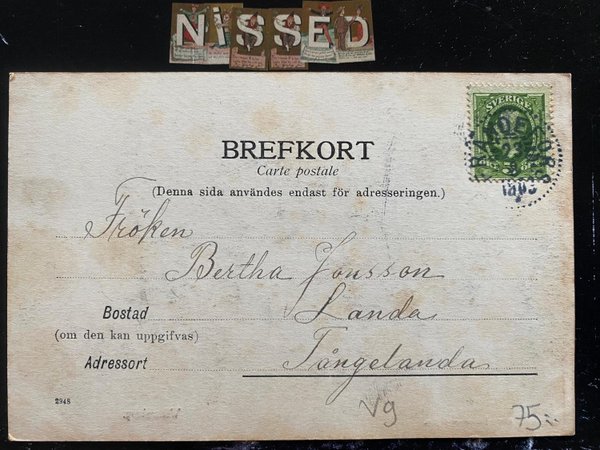 NiSSED
SVERIGE
BREFKORT
Carte postale
(Denna sida användes endast för adresseringen.)
Fröken
Bertha Jonsson
Bostad Landa
(om den kan uppgifvas)
Adressort Tångelanda
2948
Vg 75:-